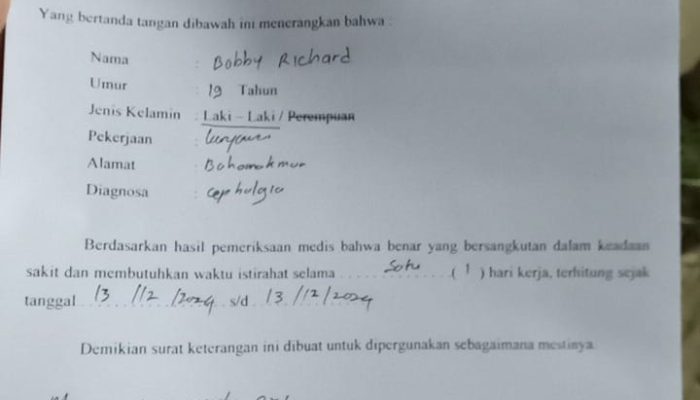 Yang bertanda tangan dibawah ini menerangkan bahwa :
Nama : Bobby Richard
Umur : 19 Tahun
Jenis Kelamin : Laki – Laki / Perempuan
Pekerjaan :
Alamat : Bahomakmur
Diagnosa : cephalgia
Berdasarkan hasil pemeriksaan medis bahwa benar yang bersangkutan dalam keadaan
sakit dan membutuhkan waktu istirahat selama .... Satu .... ( 1 ) hari kerja, terhitung sejak
tanggal 13 /12 /2024 s/d 13 /12 /2024
Demikian surat keterangan ini dibuat untuk dipergunakan sebagaimana mestinya.